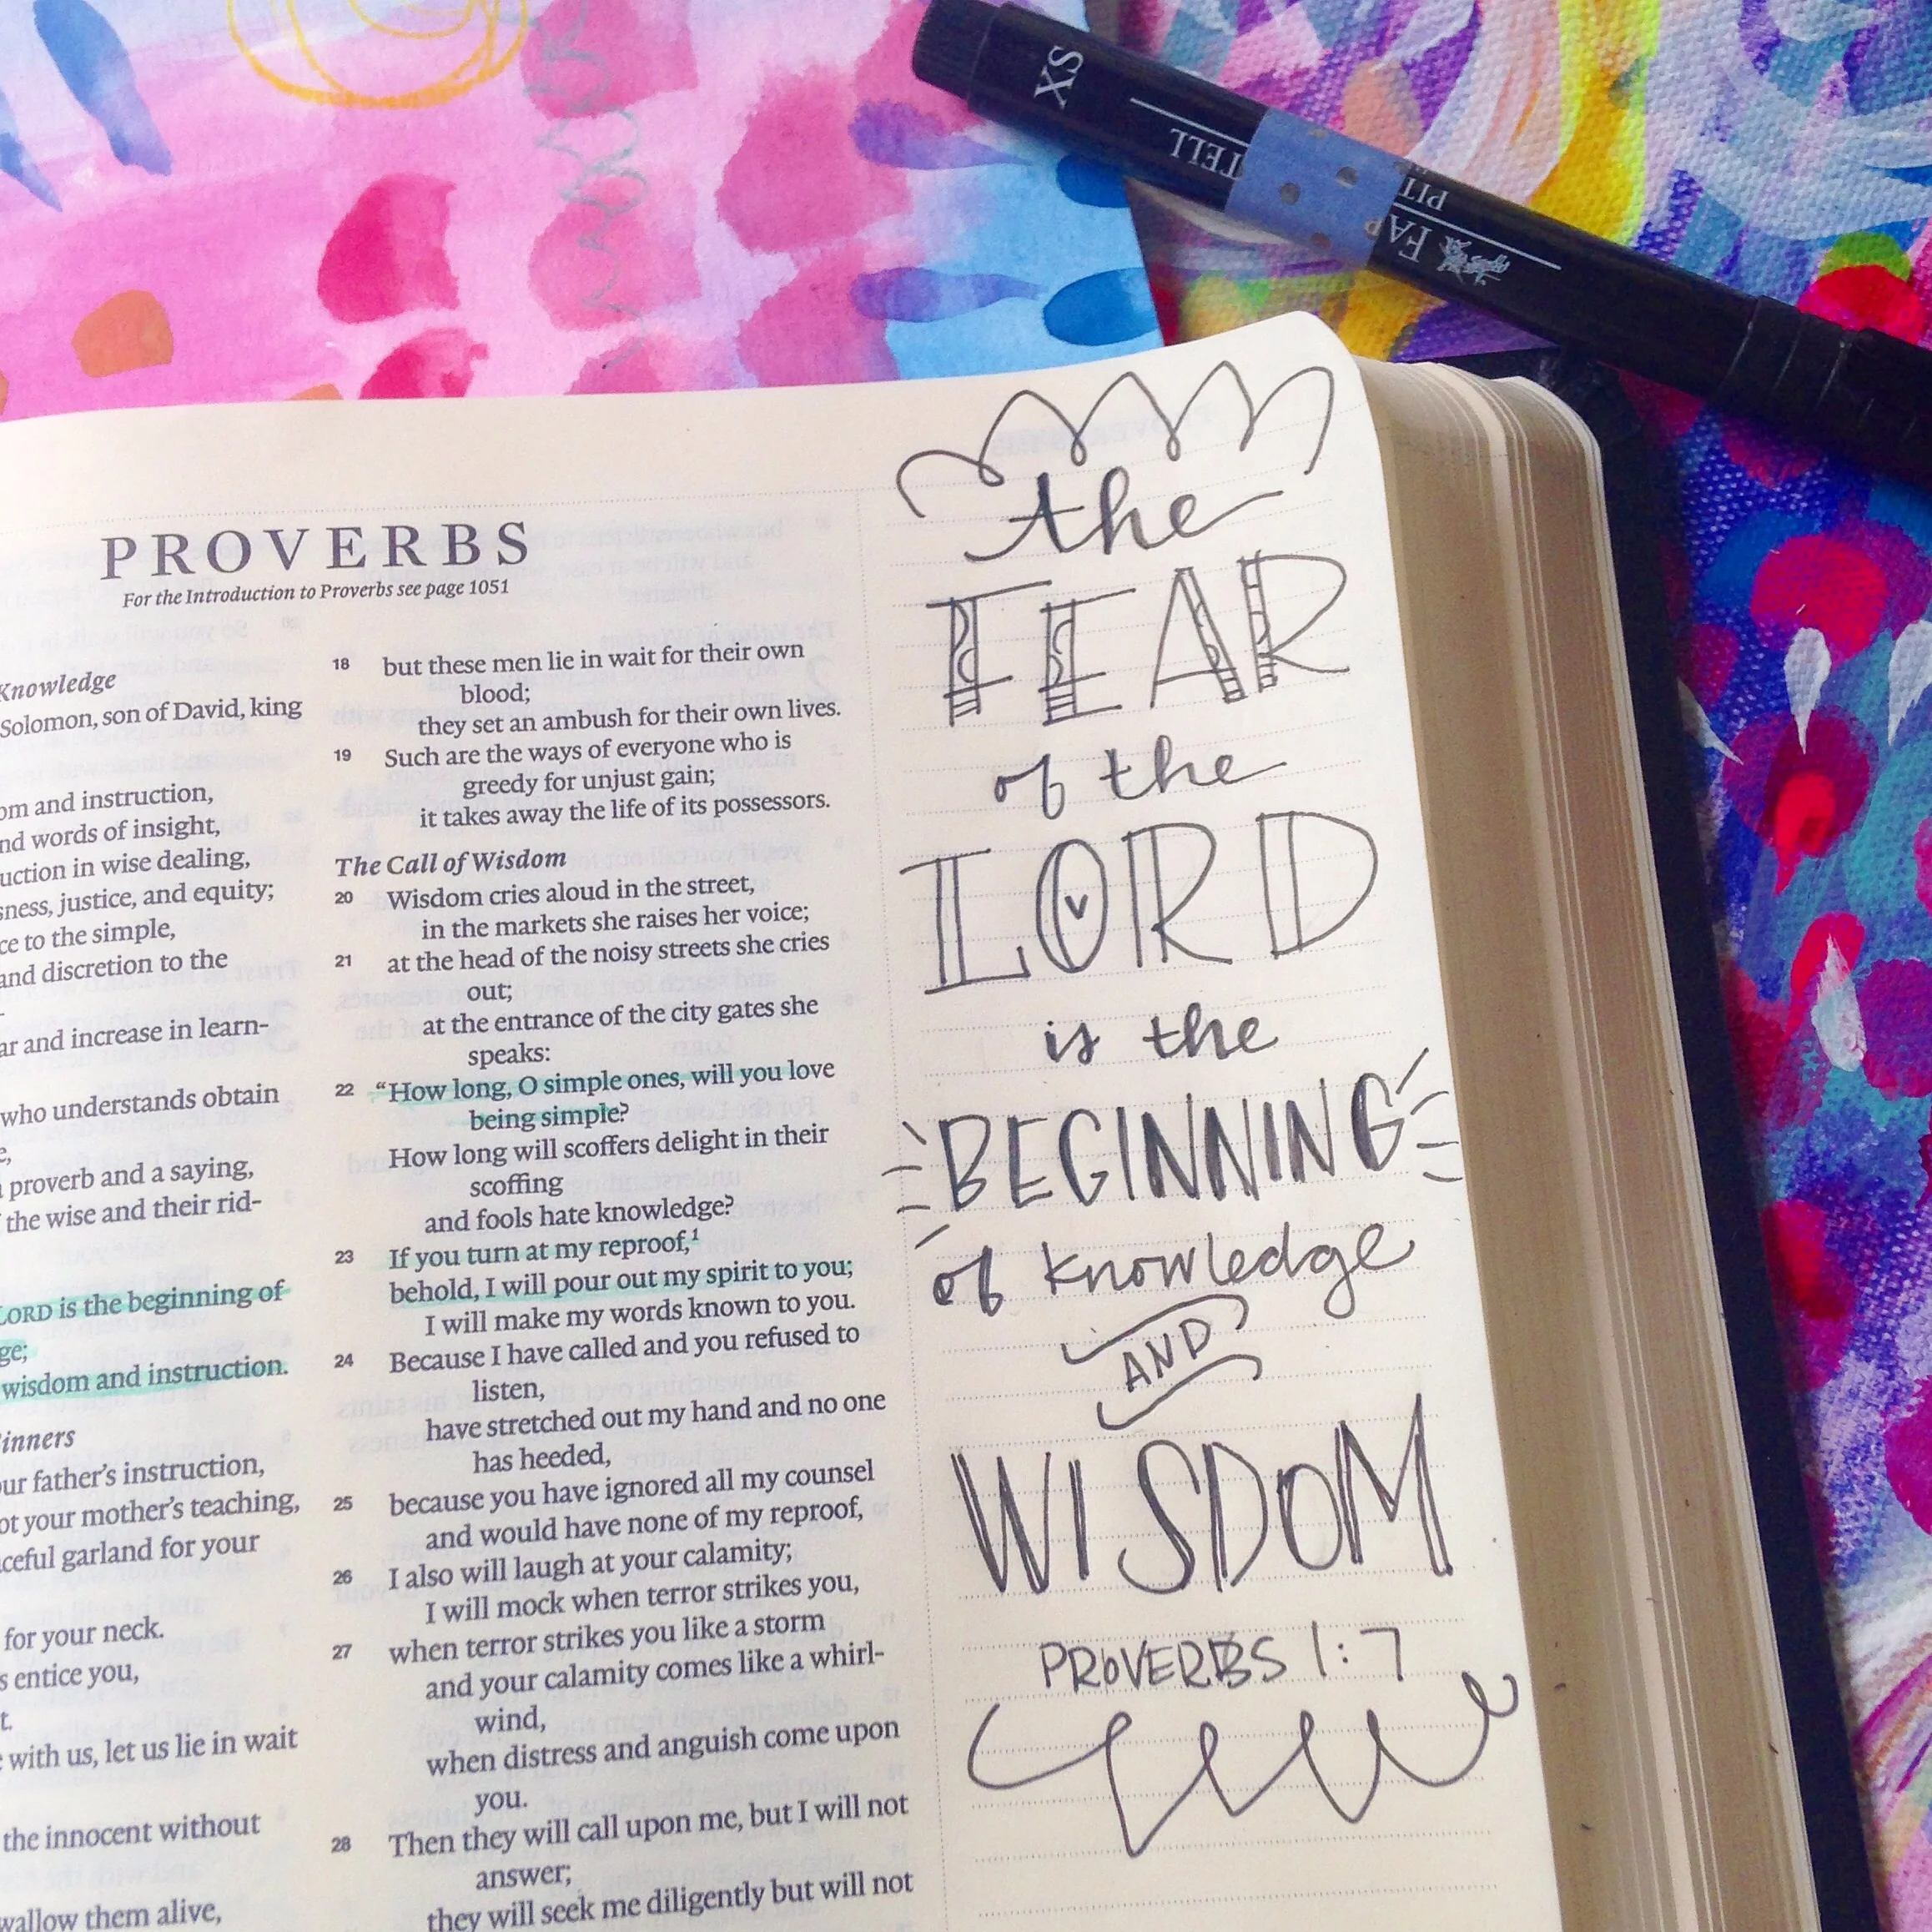 SX
TELL
PIT
FA
PROVERBS
For the Introduction to Proverbs see page 1051
Knowledge
Solomon, son of David, king
and instruction,
words of insight,
in wise dealing,
justice, and equity;
to the simple,
and discretion to the
and increase in learn-
who understands obtain
proverb and a saying,
the wise and their rid-
LORD is the beginning of
wisdom and instruction.
father's instruction,
your mother's teaching,
garland for your
for your neck.
entice you,
with us, let us lie in wait
the innocent without
them alive,
18 but these men lie in wait for their own
blood;
they set an ambush for their own lives.
19 Such are the ways of everyone who is
greedy for unjust gain;
it takes away the life of its possessors.
The Call of Wisdom
20 Wisdom cries aloud in the street,
in the markets she raises her voice;
21 at the head of the noisy streets she cries
out;
at the entrance of the city gates she
speaks:
22 “How long, O simple ones, will you love
being simple?
How long will scoffers delight in their
scoffing
and fools hate knowledge?
23 If you turn at my reproof,1
behold, I will pour out my spirit to you;
I will make my words known to you.
24 Because I have called and you refused to
listen,
have stretched out my hand and no one
has heeded,
25 because you have ignored all my counsel
and would have none of my reproof,
26 I also will laugh at your calamity;
I will mock when terror strikes you,
27 when terror strikes you like a storm
and your calamity comes like a whirl-
wind,
when distress and anguish come upon
you.
28 Then they will call upon me, but I will not
answer;
they will seek me diligently but will not
the
FEAR
of the
LORD
is the
BEGINNING
of knowledge
AND
WISDOM
PROVERBS 1:7